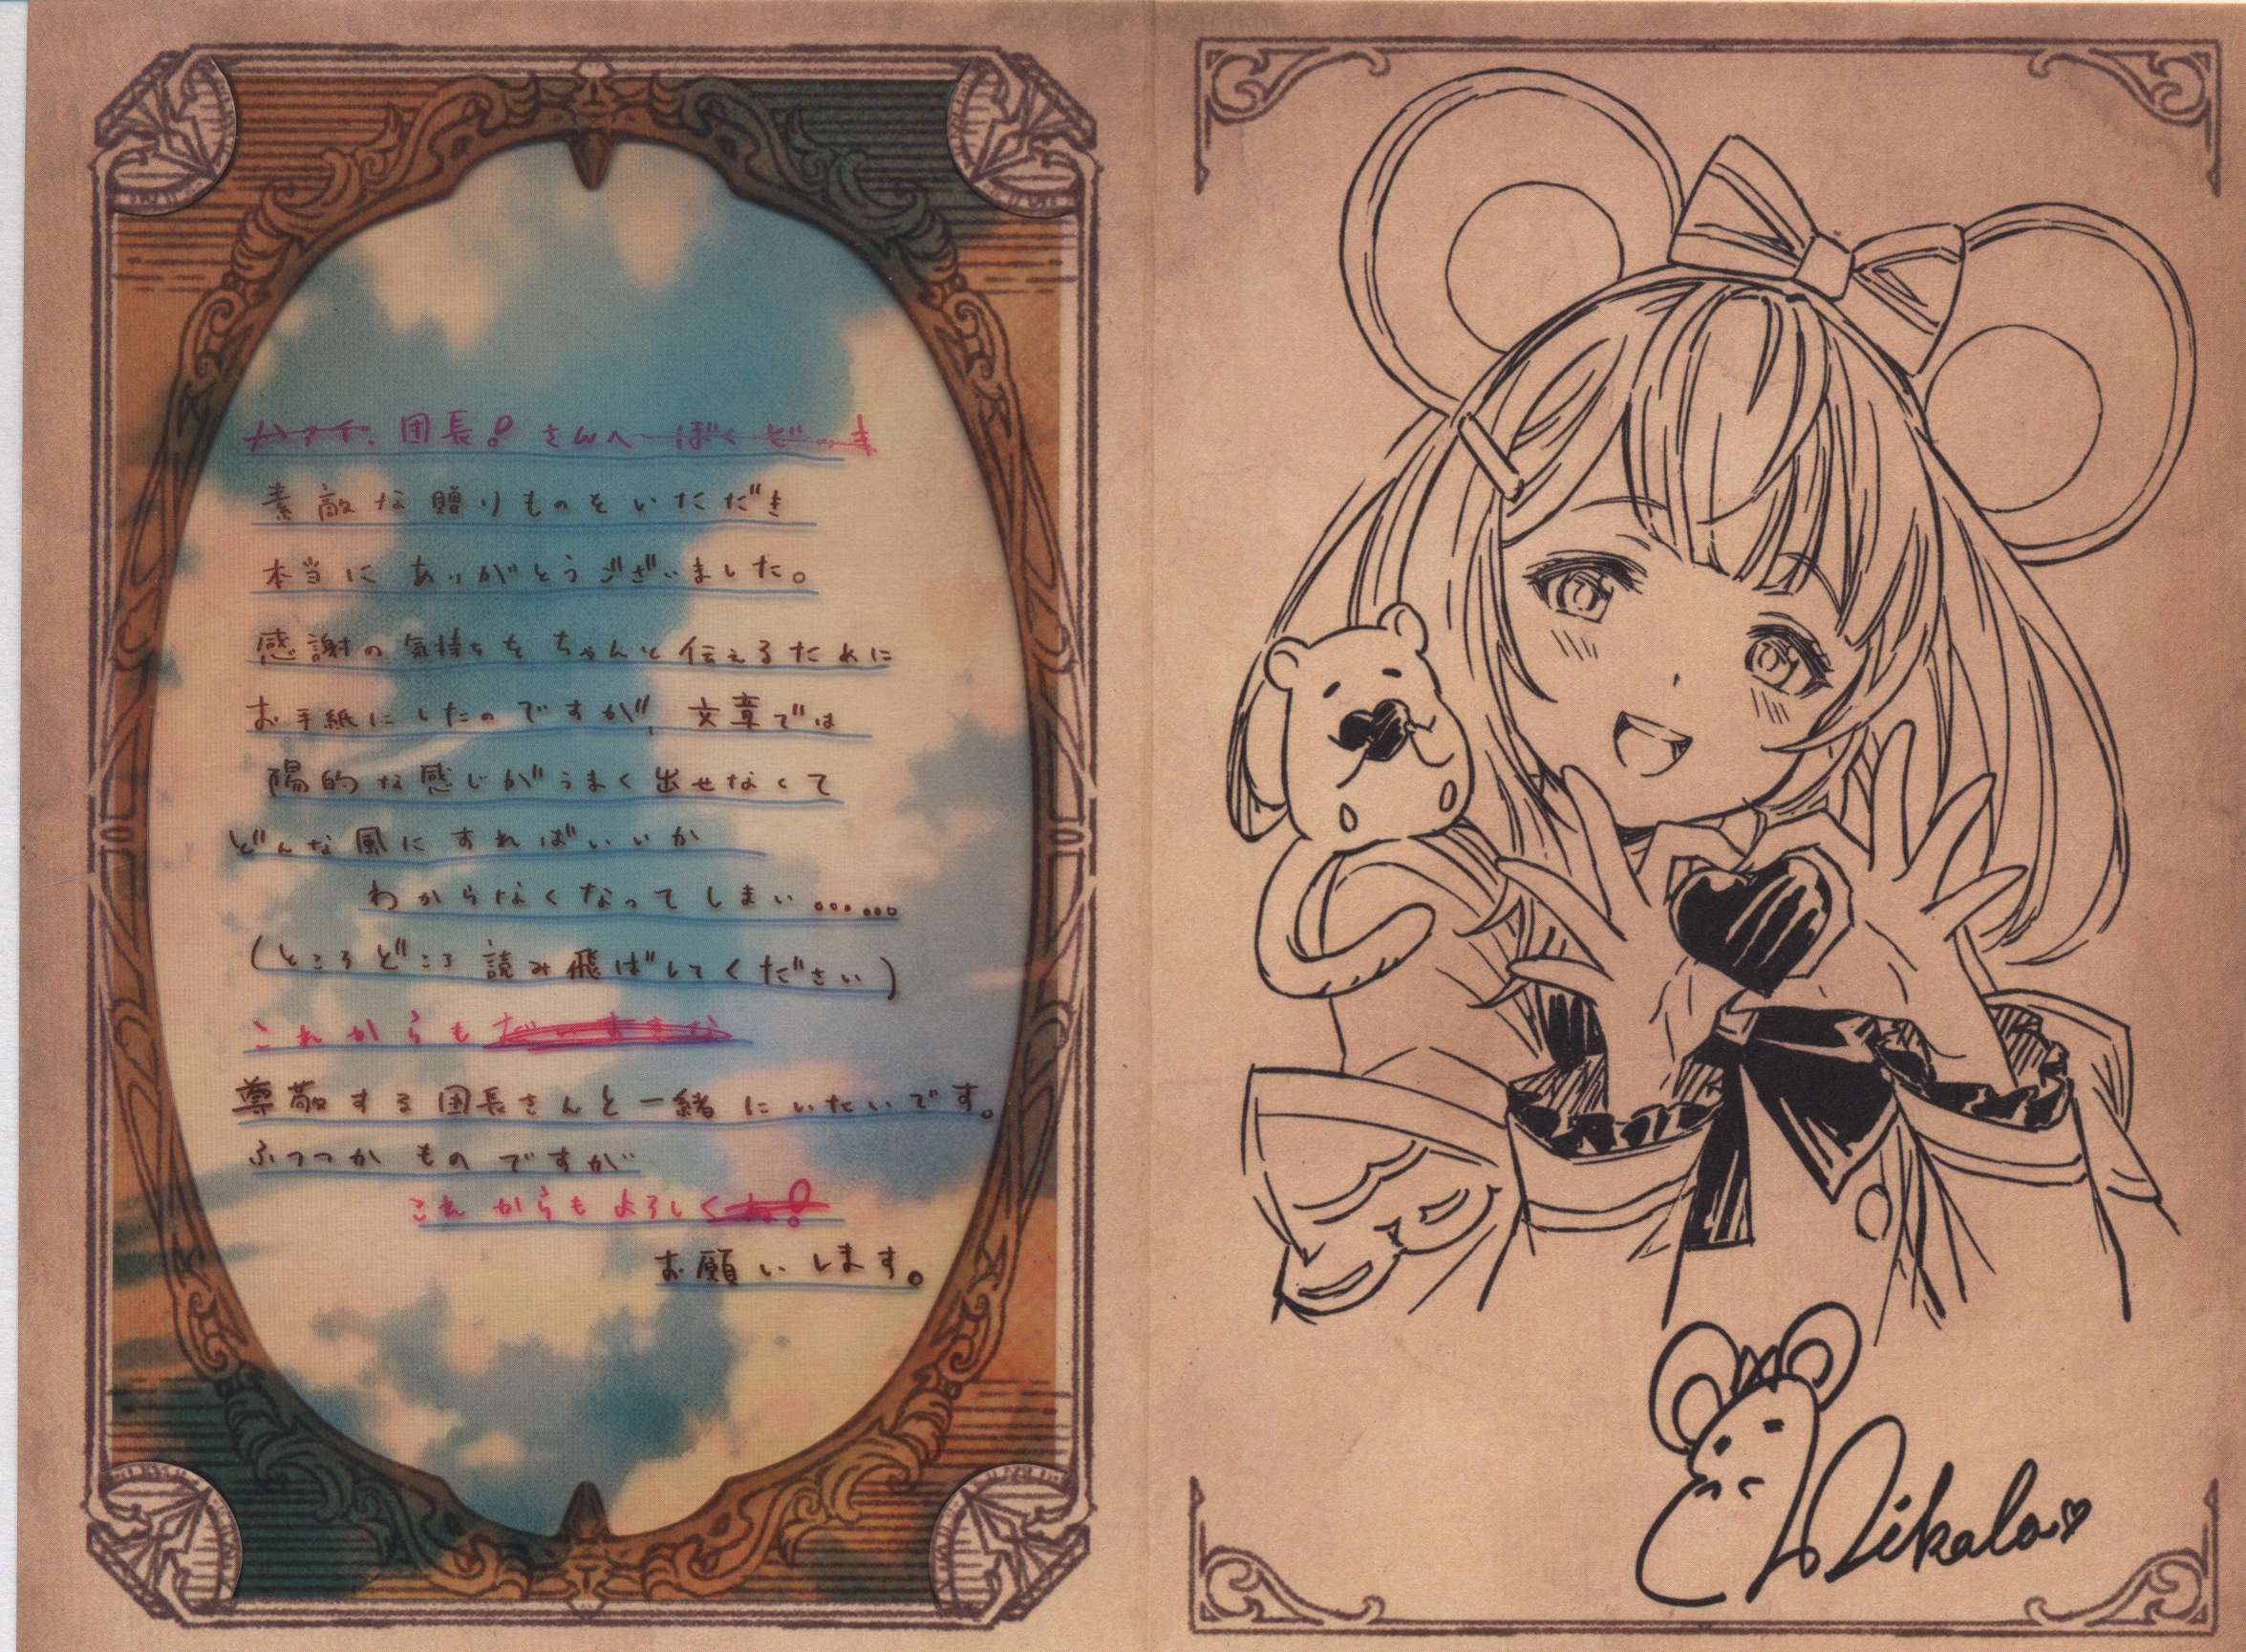 団長!さんへ
素敵な贈りものをいただき
本当にありがとうございました。
感謝の気持ちをちゃんと伝えるために
お手紙にしたのですが、文章では
陽的な感じがうまく出せなくて
どんな風にすればいいか
わからなくなってしまい……
(ところどころ読み飛ばしてください)
これからも
尊敬する団長さんと一緒にいたいです。
ふつつかものですが
これからもよろしくね!
お願いします。
Vikala♡